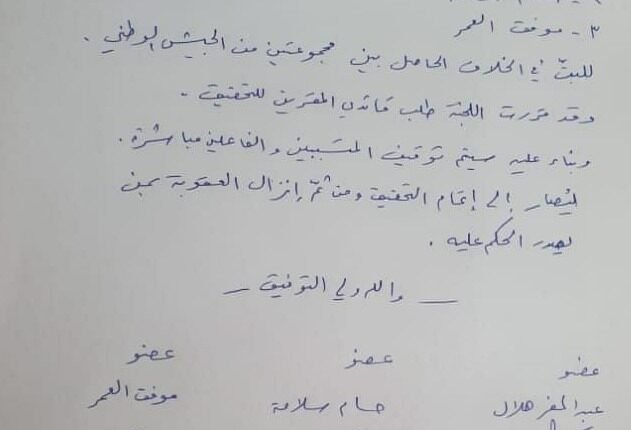 ٣ - موفق العمر
للبتّ في الخلاف الحاصل بين مجموعتين من الجيش الوطني .
وقد قررت اللجنة طلب قائدي المقرين للتحقيق .
وبناء عليه سيتم توقيف المتسببين والفاعلين مباشرة .
ليُصار إلى إتمام التحقيق ومن ثمّ إنزال العقوبة بمن
يصدر الحكم عليه .
— والله ولي التوفيق —
عضو عضو عضو
عبد المعز هلال حسام سلامة موفق العمر